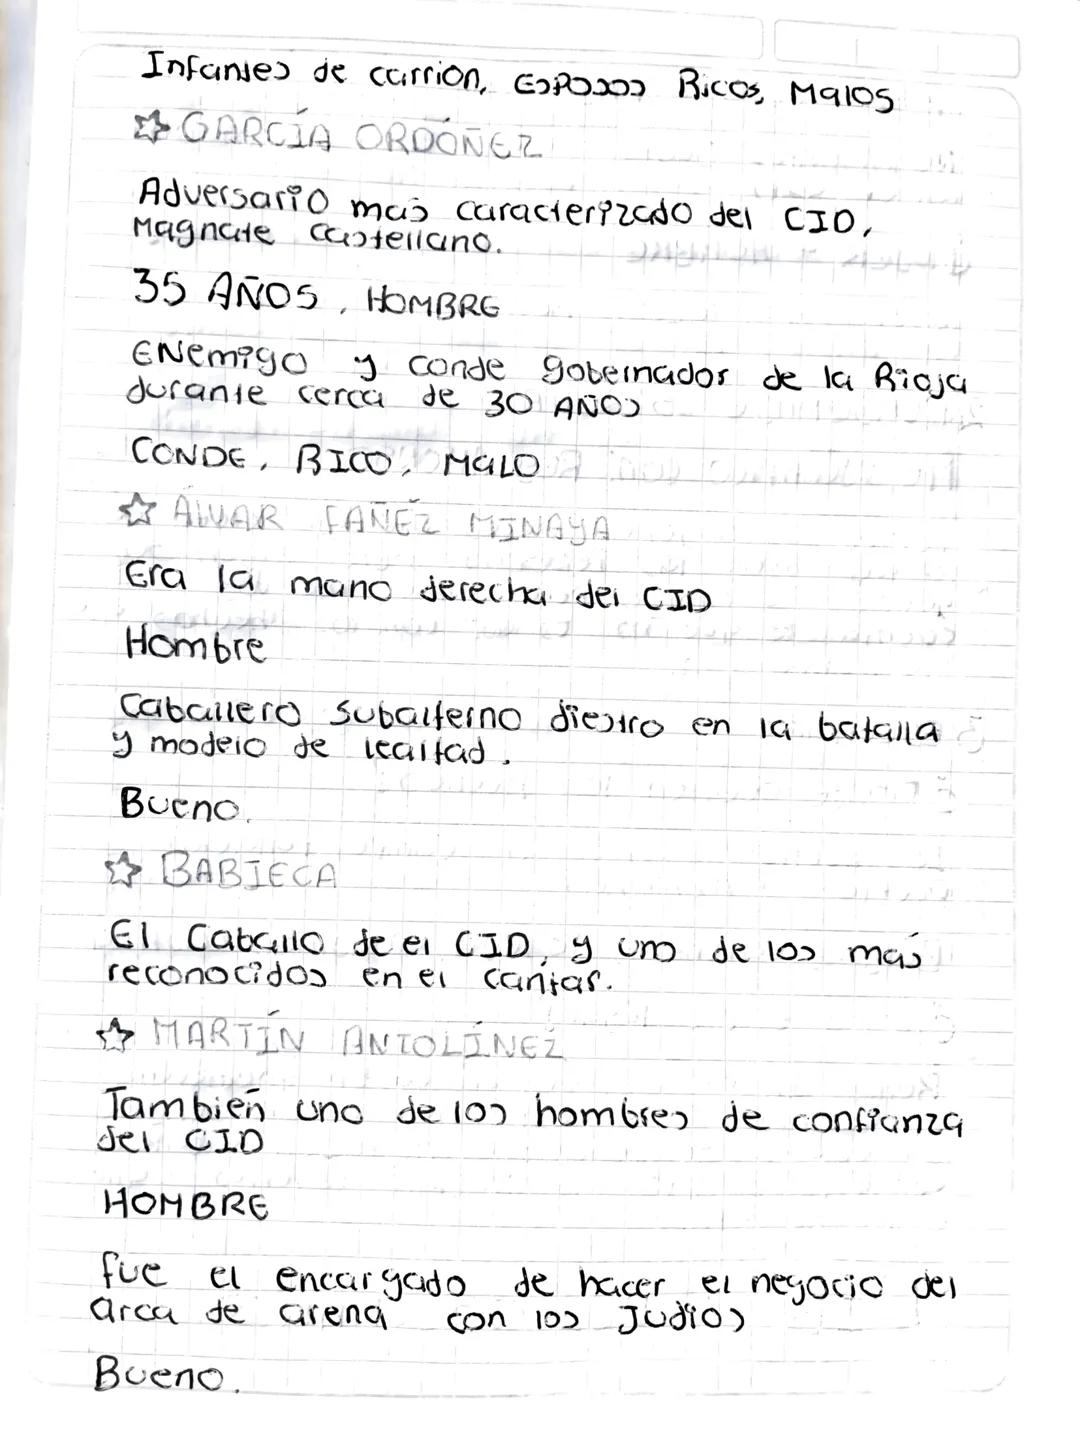 Infantes de carrion, Esposos Ricos, Malos
☆ GARCÍA ORDÓÑEZ
Adversario más caracterizado del CID,
Magnate castellano.
35 AÑOS, HOMBRE
Enemigo y conde gobernador de la Rioja
durante cerca de 30 AÑOS
CONDE, RICO, MALO
☆ ÁLVAR FAÑEZ MINAYA
Era la mano derecha del CID
Hombre
Caballero subalterno diestro en la batalla
y modelo de lealtad.
Bueno.
☆ BABIECA
El Caballo de el CID, y uno de los más
reconocidos en el cantar.
☆ MARTÍN ANTOLÍNEZ
También uno de los hombres de confianza
del CID
HOMBRE
fue el encargado de hacer el negocio del
arca de arena con los Judios
Bueno.